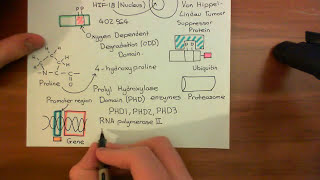 HIF-1β (Nucleus)
402 564
Von Hippel-
Lindau Tumor
Suppressor
Protein
Oxygen Dependent
Degradation (ODD)
Domain
4-hydroxyproline
Proline
Ubiquitin
Prolyl Hydroxylase
Domain (PHD) enzymes
Proteasome
PHD1, PHD2, PHD3
Promoter region
RNA polymerase II
Gene